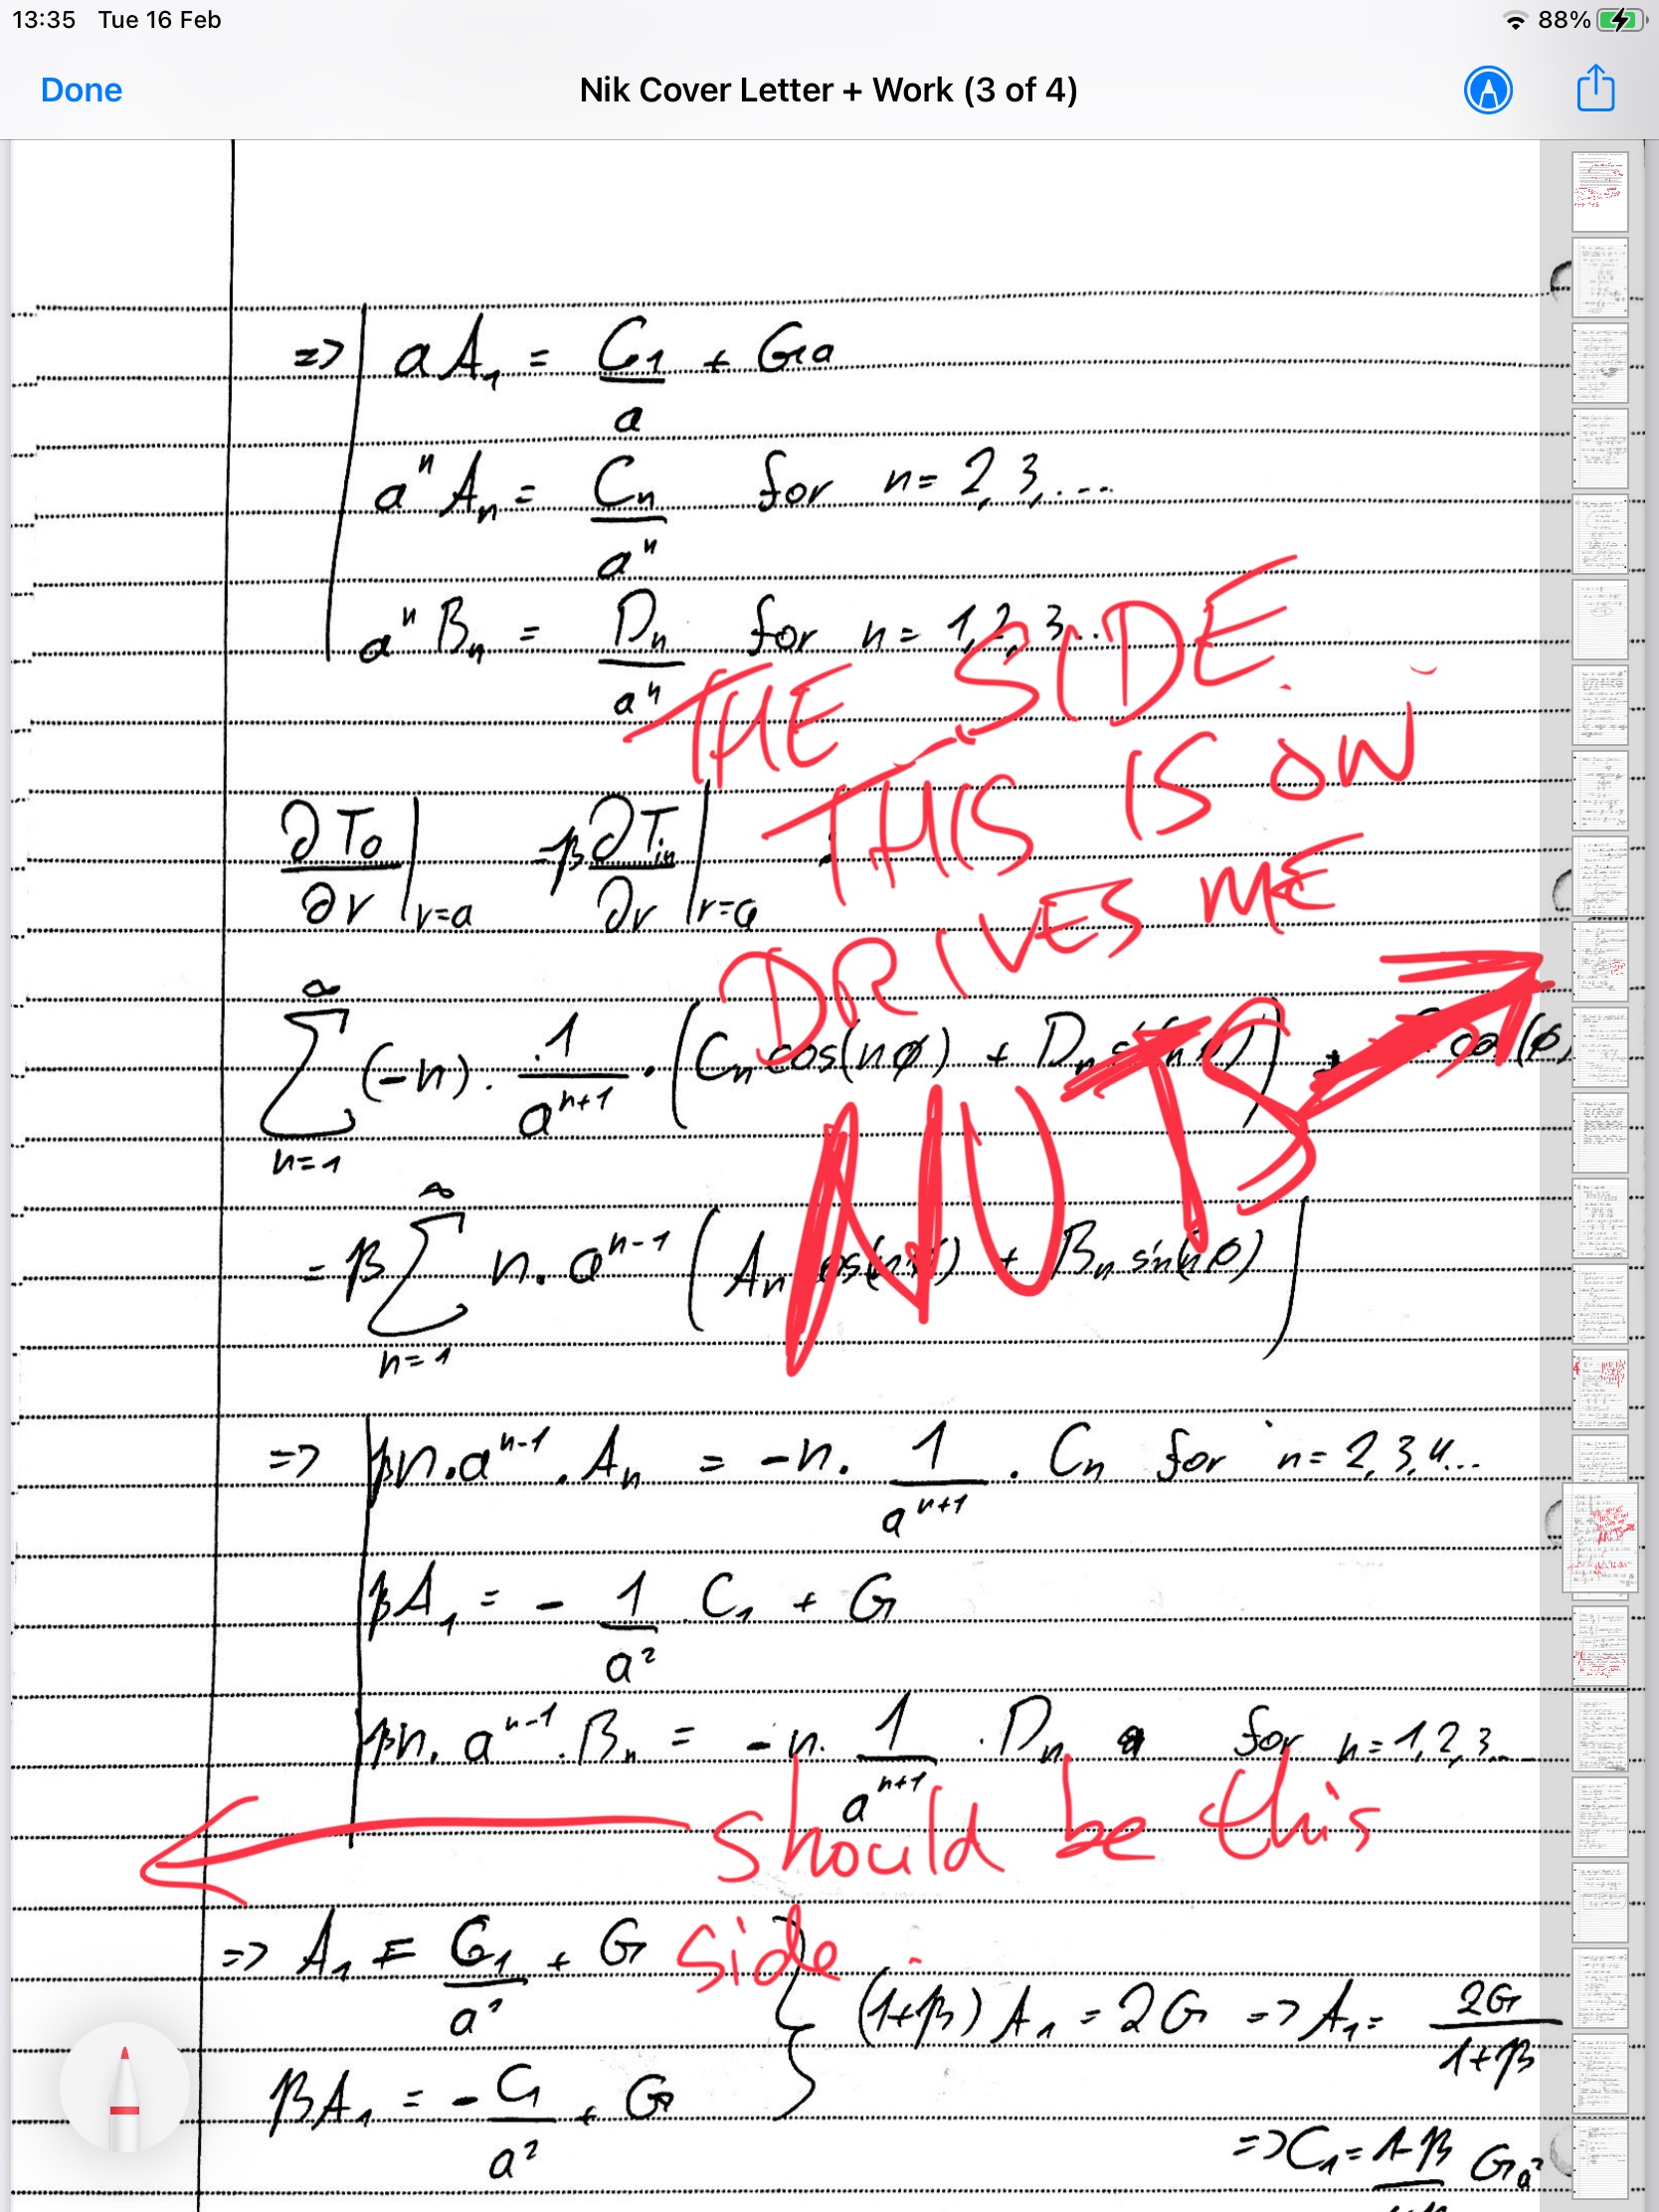 13:35 Tue 16 Feb 88%
Done Nik Cover Letter + Work (3 of 4)
=> aA₁ = C₁/a + Ga
aⁿAₙ = Cₙ/aⁿ for n = 2,3,...
aⁿBₙ = Dₙ/aⁿ for n = 1,2,3..
THE SIDE
THIS IS ON
DRIVES ME
NUTS
∂T₀/∂r |r=a = β ∂Tᵢₙ/∂r |r=a
∑ₙ₌₁^∞ (-n) · 1/aⁿ⁺¹ · (Cₙ cos(nø) + Dₙ sin(nø)) + cos(ø
= β ∑ₙ₌₁^∞ n · aⁿ⁻¹ (Aₙ cos(nø) + Bₙ sin(nø))
=> βn·aⁿ⁻¹·Aₙ = -n · 1/aⁿ⁺¹ · Cₙ for n = 2,3,4...
βA₁ = - 1/a² C₁ + G
βn · aⁿ⁻¹ · Bₙ = -n · 1/aⁿ⁺¹ · Dₙ for n = 1,2,3...
should be this
side.
=> A₁ = C₁/a² + G
βA₁ = - C₁/a² + G
(1+β)A₁ = 2G => A₁ = 2G/1+β
=> C₁ = 1-β Ga²